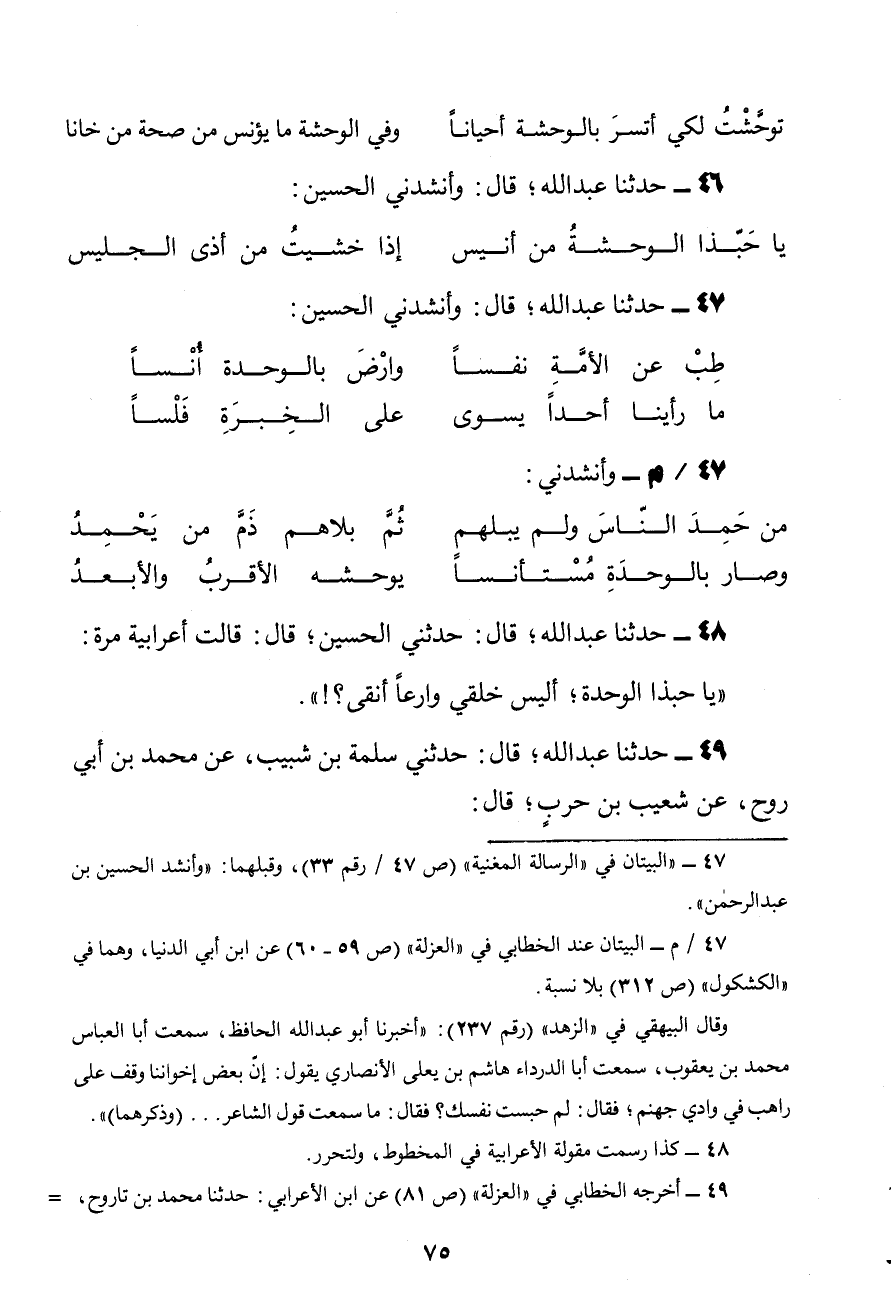 توحَّشْتُ لكي أتسرَ بالوحشة أحياناً وفي الوحشة ما يؤنس من صحة من خانا
٤٦ ـ حدثنا عبدالله؛ قال: وأنشدني الحسين:
يا حَبّذا الوحشةُ من أنيس إذا خشيتُ من أذى الجليس
٤٧ ـ حدثنا عبدالله؛ قال: وأنشدني الحسين:
طِبْ عن الأمَّةِ نفساً وارْضَ بالوحدة أُنْساً
ما رأينا أحداً يسوى على الخِبرَةِ فَلْساً
٤٧ / م ـ وأنشدني:
من حَمِدَ النّاسَ ولم يبلهم ثُمَّ بلاهم ذَمَّ من يَحْمِدُ
وصار بالوحدَةِ مُسْتأنساً يوحشه الأقربُ والأبعدُ
٤٨ ـ حدثنا عبدالله؛ قال: حدثني الحسين؛ قال: قالت أعرابية مرة:
«يا حبذا الوحدة؛ أليس خلقي وارعاً أنقى؟!».
٤٩ ـ حدثنا عبدالله؛ قال: حدثني سلمة بن شبيب، عن محمد بن أبي
روح، عن شعيب بن حربٍ؛ قال:
٤٧ ـ «البيتان في «الرسالة المغنية» (ص ٤٧ / رقم ٣٣)، وقبلهما: «وأنشد الحسين بن
عبدالرحمٰن».
٤٧ / م ـ البيتان عند الخطابي في «العزلة» (ص ٥٩ ـ ٦٠) عن ابن أبي الدنيا، وهما في
«الكشكول» (ص ٣١٢) بلا نسبة.
وقال البيهقي في «الزهد» (رقم ٢٣٧): «أخبرنا أبو عبدالله الحافظ، سمعت أبا العباس
محمد بن يعقوب، سمعت أبا الدرداء هاشم بن يعلى الأنصاري يقول: إنّ بعض إخواننا وقف على
راهب في وادي جهنم؛ فقال: لم حبست نفسك؟ فقال: ما سمعت قول الشاعر... (وذكرهما)».
٤٨ ـ كذا رسمت مقولة الأعرابية في المخطوط، ولتحرر.
٤٩ ـ أخرجه الخطابي في «العزلة» (ص ٨١) عن ابن الأعرابي: حدثنا محمد بن تاروح، =
٧٥